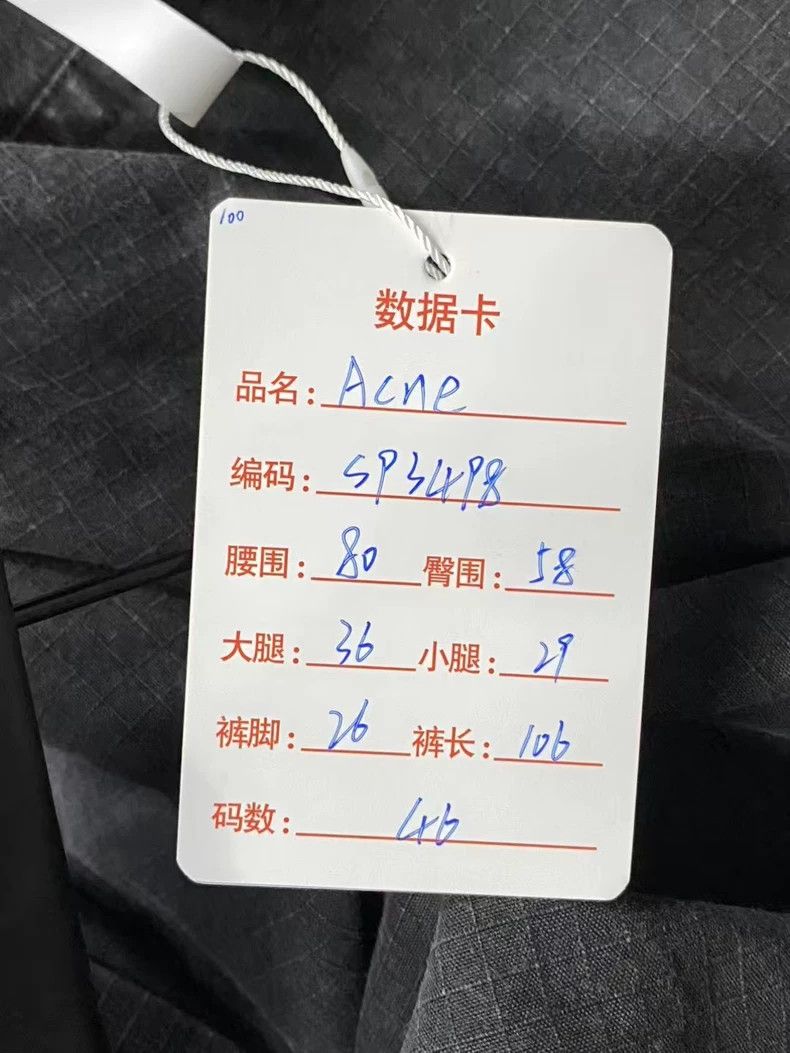 100
数据卡
品名: Acne
编码: SP3498
腰围: 80 臀围: 58
大腿: 36 小腿: 29
裤脚: 26 裤长: 106
码数: 46